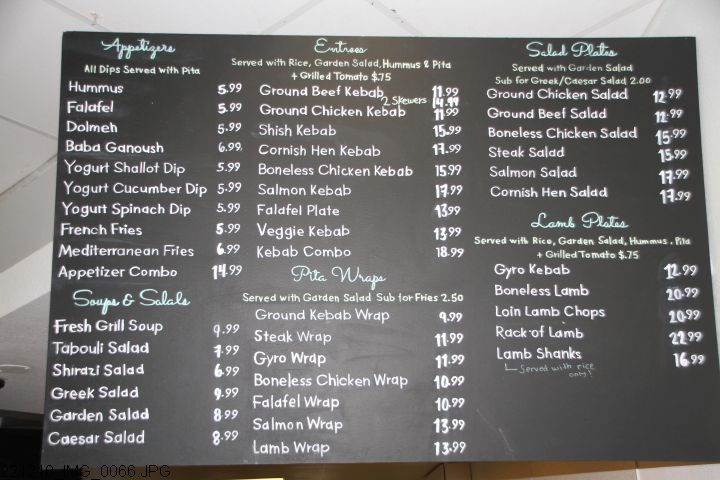 Appetizers
All Dips Served with Pita
Hummus 5.99
Falafel 5.99
Dolmeh 5.99
Baba Ganoush 6.99
Yogurt Shallot Dip 5.99
Yogurt Cucumber Dip 5.99
Yogurt Spinach Dip 5.99
French Fries 5.99
Mediterranean Fries 6.99
Appetizer Combo 14.99
Soups & Salads
Fresh Grill Soup 9.99
Tabouli Salad 7.99
Shirazi Salad 6.99
Greek Salad 9.99
Garden Salad 8.99
Caesar Salad 8.99
Entrees
Served with Rice, Garden Salad, Hummus & Pita
+ Grilled Tomato $.75
Ground Beef Kebab 11.99
2 Skewers 14.99
Ground Chicken Kebab 11.99
Shish Kebab 15.99
Cornish Hen Kebab 17.99
Boneless Chicken Kebab 15.99
Salmon Kebab 17.99
Falafel Plate 13.99
Veggie Kebab 13.99
Kebab Combo 18.99
Pita Wraps
Served with Garden Salad Sub for Fries 2.50
Ground Kebab Wrap 9.99
Steak Wrap 11.99
Gyro Wrap 11.99
Boneless Chicken Wrap 10.99
Falafel Wrap 10.99
Salmon Wrap 13.99
Lamb Wrap 13.99
Salad Plates
Served with Garden Salad
Sub for Greek/Caesar Salad 2.00
Ground Chicken Salad 12.99
Ground Beef Salad 12.99
Boneless Chicken Salad 15.99
Steak Salad 15.99
Salmon Salad 17.99
Cornish Hen Salad 17.99
Lamb Plates
Served with Rice, Garden Salad, Hummus, Pita
+ Grilled Tomato $.75
Gyro Kebab 12.99
Boneless Lamb 20.99
Loin Lamb Chops 20.99
Rack of Lamb 22.99
Lamb Shanks 16.99
Served with rice
only!
IMG_0066.JPG